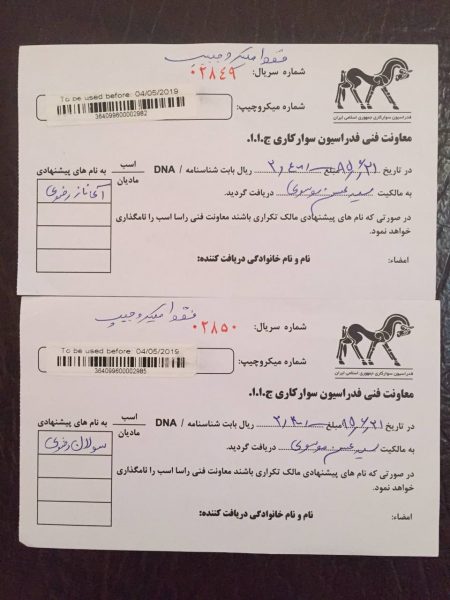 فقط میکروچیپ
شماره سریال: ۰۲۸۴۹
فدراسیون سوارکاری جمهوری اسلامی ایران
To be used before: 04/05/2019
شماره میکروچیپ:
364099600002982
معاونت فنی فدراسیون سوارکاری ج.ا.ا.
در تاریخ ۹۵٫۶٫۲۱ مبلغ ریال بابت شناسنامه / DNA اسب مادیان به نام های پیشنهادی
به مالکیت سید حسن موسوی دریافت گردید. آی ناز رضوی
در صورتی که نام های پیشنهادی مالک تکراری باشند معاونت فنی راسا اسب را نامگذاری
خواهد نمود.
امضاء: نام و نام خانوادگی دریافت کننده:
فقط میکروچیپ
شماره سریال: ۰۲۸۵۰
فدراسیون سوارکاری جمهوری اسلامی ایران
To be used before: 04/05/2019
شماره میکروچیپ:
364099600002985
معاونت فنی فدراسیون سوارکاری ج.ا.ا.
در تاریخ ۹۵٫۶٫۲۱ مبلغ ریال بابت شناسنامه / DNA اسب مادیان به نام های پیشنهادی
به مالکیت سید حسن موسوی دریافت گردید. سولان رضوی
در صورتی که نام های پیشنهادی مالک تکراری باشند معاونت فنی راسا اسب را نامگذاری
خواهد نمود.
امضاء: نام و نام خانوادگی دریافت کننده: